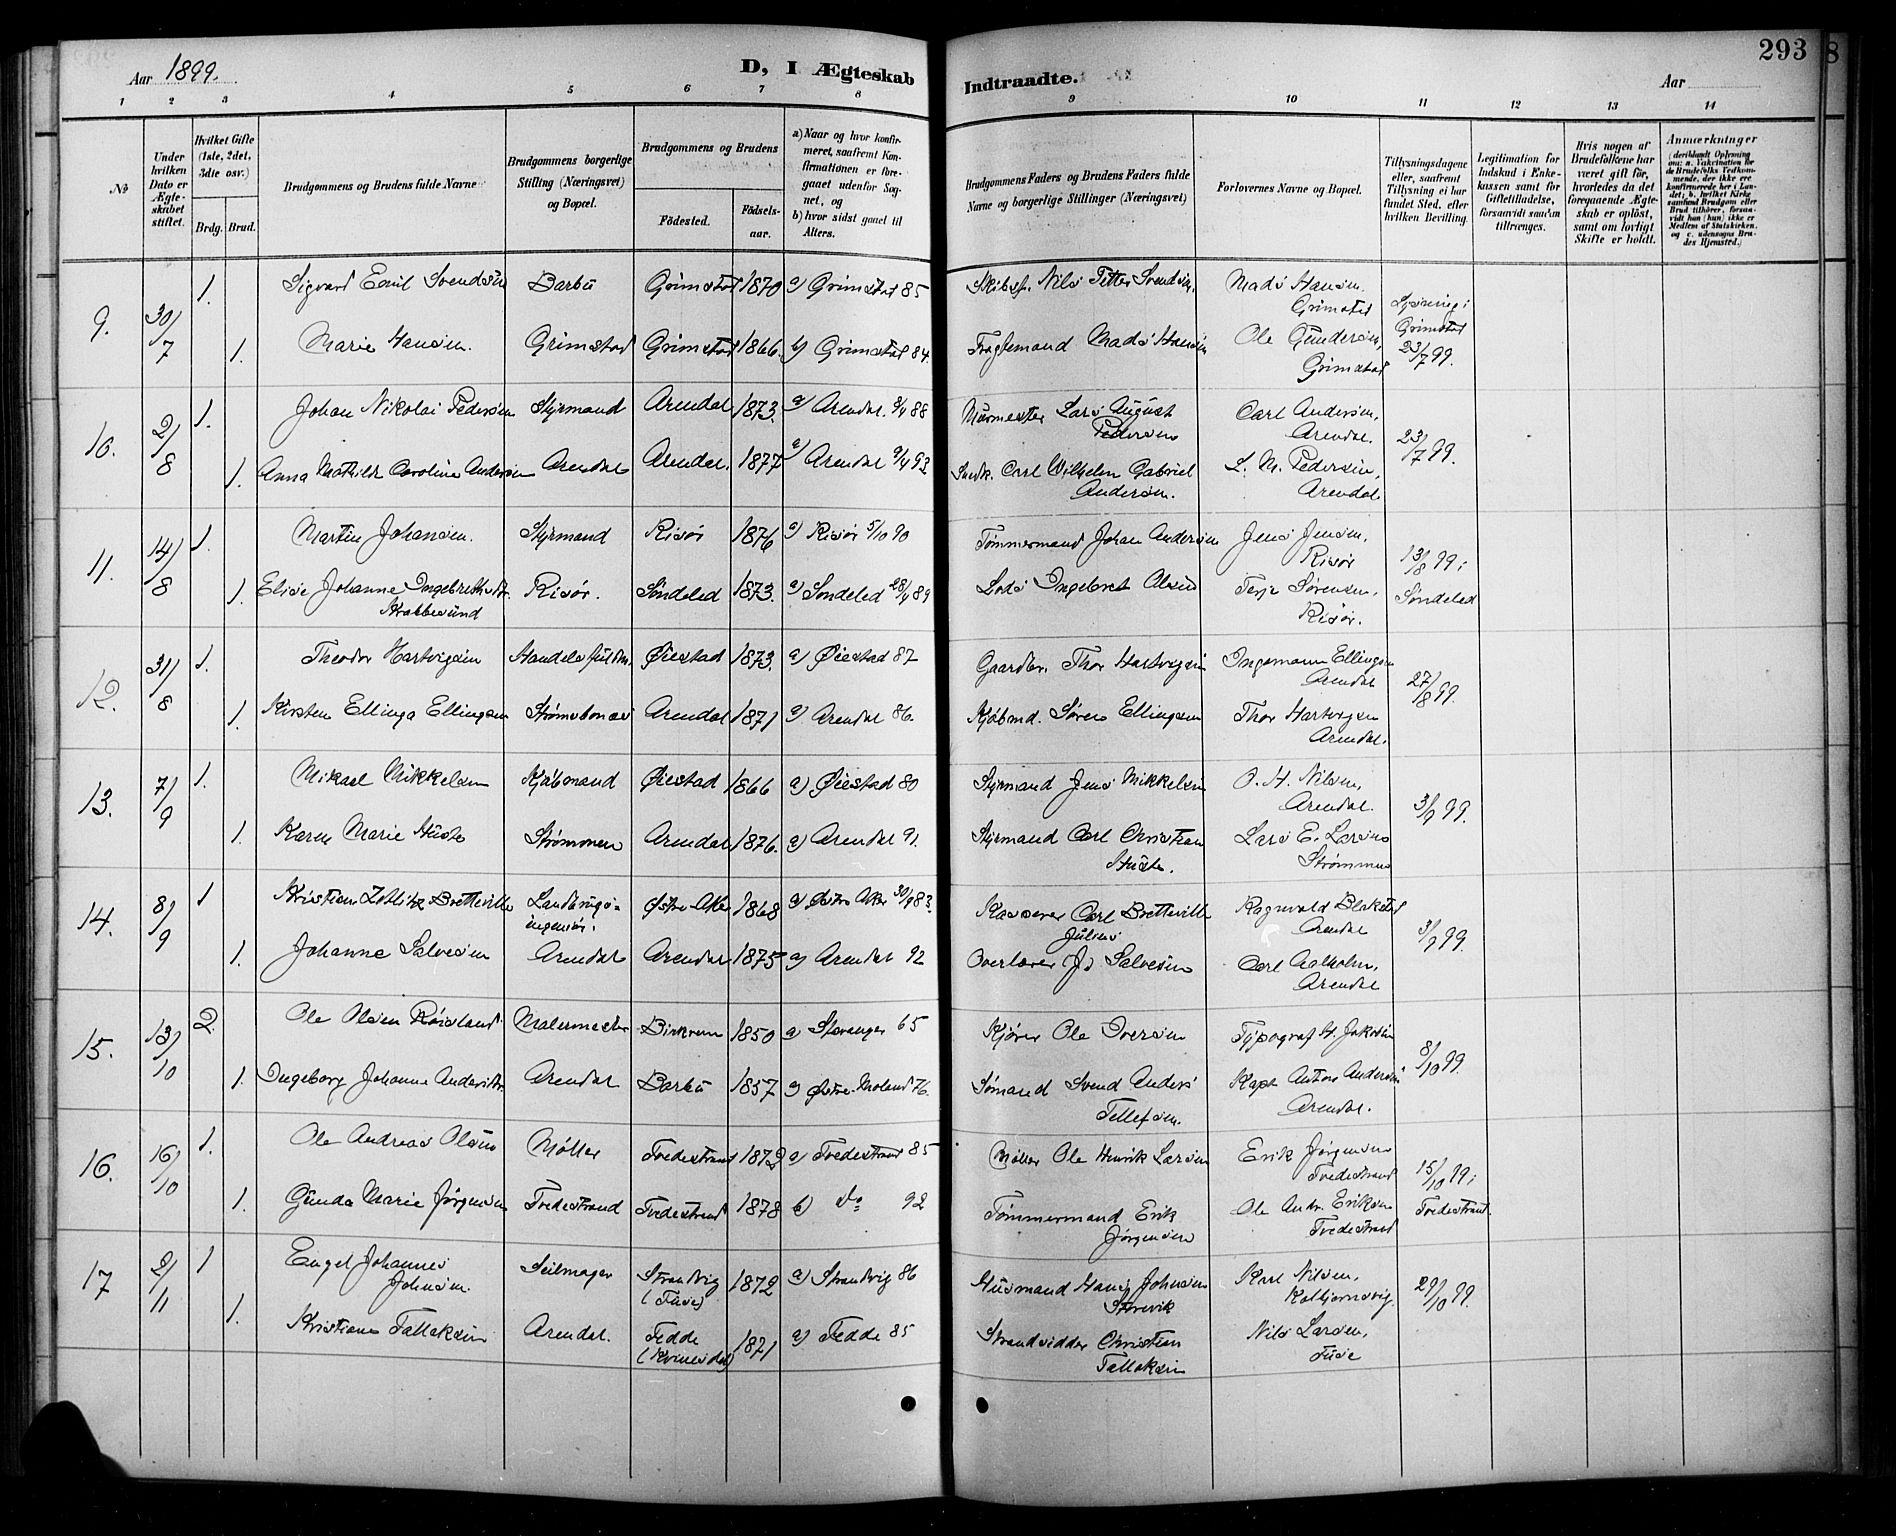 293
Aar 1899.
D, I Ægteskab Indtraadte.
Aar
1 2 3 4 5 6 7 8 9 10 11 12 13 14
№
Under hvilken Dato er Ægteskabet stiftet.
Hvilket Gifte (1ste, 2det, 3die osv.)
Brdg. Brud.
Brudgommens og Brudens fulde Navne
Brudgommens borgerlige Stilling (Næringsvei) og Bopæl.
Brudgommens og Brudens
Fødested. Fødselsaar.
a) Naar og hvor konfirmeret, saafremt Konfirmationen er foregaaet udenfor Sognet, og
b) hvor sidst gaaet til Alters.
Brudgommens Faders og Brudens Faders fulde Navne og borgerlige Stillinger (Næringsvei)
Forlovernes Navne og Bopæl.
Tillysningsdagene eller, saafremt Tillysning ei har fundet Sted, efter hvilken Bevilling.
Legitimation for Indskud i Enkekassen samt for Giftetilladelse, forsaavidt saadan tiltrænges.
Hvis nogen af Brudefolkene har været gift før, hvorledes da det foregaaende Ægteskab er opløst, samt om lovligt Skifte er holdt.
Anmærkninger
9. 30/7 1. Sigvard Emil Svendsen Barbu Grimstad 1870 a) Grimstad 85 Skibsf. Nils Petter Svendsen, Mads Hansen. Grimstad Lysning i Grimstad 23/7 99.
1. Marie Hansen. Grimstad Grimstad 1866. b) Grimstad 84. Fragtemand Mads Hansen Ole Gundersen, Grimstad
10. 2/8 1. Johan Nikolai Pedersen Styrmand Arendal 1873. a) Arendal 88 Murmester Lars August Pedersen Carl Andersen, Arendal. 23/7 99.
1. Anna Mathilde Caroline Andersen Arendal Arendal. 1877 a) Arendal 9/4 93 Carl Wilhelm Gabriel Andersen. L. M. Pedersen, Arendal
11. 14/8 1. Martin Johansen. Styrmand Risör 1876 a) Risör 5/10 90 Tømmermand Johan Andersen Jens Jensen, Risør 13/8 99 i Søndeled
1. Elise Johanne Ingebrethsdtr. Krabbesund Risør. Søndeled 1873. a) Søndeled 28/4 89 Lods Ingebret Olsen Terje Sørensen, Risør.
12. 31/8 1. Theodor Hartvigsen Øiestad 1873. a) Øiestad 87 Gaardbr. Thor Hartvigsen Ingemann Ellingsen Arendal 27/8 99.
1. Kirsten Ellinga Ellingsen Strømsbonæs Arendal 1871 a) Arendal 86. Kjøbmd. Søren Ellingsen Thor Hartvigsen Arendal.
13. 7/9 1. Mikael Mikkelsen Kjøbmand Øiestad 1866 a) Øiestad 80 Styrmand Jens Mikkelsen O. H. Nilsen, Arendal. 3/9 99.
1. Karen Marie Strømmen Arendal 1876. a) Arendal 91. Styrmand Carl Christian Lars E. Larsen Strømmen
14. 8/9 1 Kristian Zetlitz Bretteville Landbrugsingeniør. Østre Aker 1868 a) Østre Aker 30/9 83. Kasserer Carl Bretteville Julius Ragnvald Blakstad Arendal 3/9 99
1. Johanne Salvesen Arendal Arendal 1875 a) Arendal 92 Overlærer Js Salvesen Carl Aalholm, Arendal
15. 13/10 2. Ole Olsen Røisland Malermester Birkrem 1850 a) Stavanger 65 Kjører Ole Iversen Typograf H. Jakobsen 8/10 99.
1. Ingeborg Johanne Andersdtr. Arendal Barbu 1857 a) Østre Moland 76. Sømand Svend Anders Tellefsen. Kapt Anton Andersen Arendal.
16. 16/10 1. Ole Andreas Olsen Møller Tvedestrand 1872 a) Tvedestrand 85 Møller Ole Henrik Larsen Erik Jørgensen Tvedestrand 15/10 99 i Tvedestrand.
1. Gunda Marie Jørgensen Tvedestrand Tvedestrand 1878 b) do 92 Tømmermand Erik Jørgensen Ole Andr. Eriksen Tvedestrand
17 2/11 1 Engel Johannes Johnsen. Seilmager Strandvig (Fuse) 1872 a) Strandvig 86 Husmand Hans Johnsen Karl Nilsen, Kolbjørnsvig. 29/10 99.
1. Kristiane Tallaksen Arendal. Fedde (Kvinesdal) 1871 a) Fedde 85 Strandsidder Christian Tallaksen Nils Larsen, Fuse